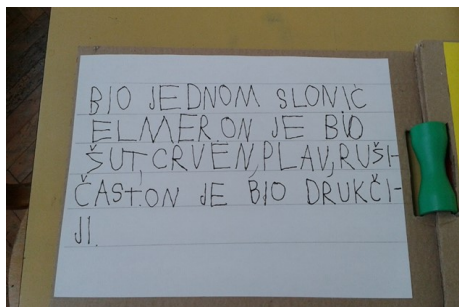 BIO JEDNOM SLONIĆ
ELMER.ON JE BIO
ŠUT,CRVEN,PLAV,RUŠI-
ČAST.ON JE BIO DRUKČI-
JI.